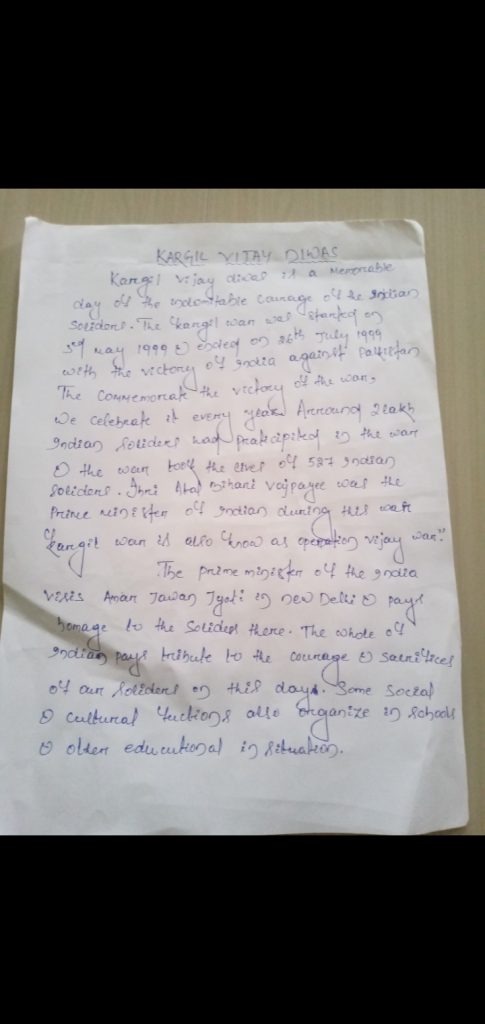 KARGIL VIJAY DIWAS
Kargil vijay diwas is a memorable
day of the indomitable courage of the Indian
soliders. The kargil war was started on
3rd may 1999 & ended on 26th July 1999
with the victory of India against Pakistan
The Commemorate the victory of the war,
We celebrate it every year. Around 2 lakh
Indian soliders had praticipited in the war
& the war took the lives of 527 Indian
soliders. Shri Atal Bihari Vajpayee was the
Prime minister of Indian during this war
"Kargil war is also know as operation vijay war."
The prime minister of the India
visis Amar Jawan Jyoti in new Delhi & pays
homage to the soliders there. The whole of
Indian pays tribute to the courage & sacrifices
of our soliders on this days. Some social
& cultural fuctions also organize in schools
& other educutional in situation.